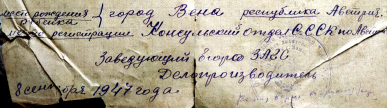 место рождения } город Вена республика Австрия
ребёнка
место регистрации Консульский отдел СССР по Австрии
Заведующий бюро ЗАГС
Делопроизводитель
8 сентября 1947 года.